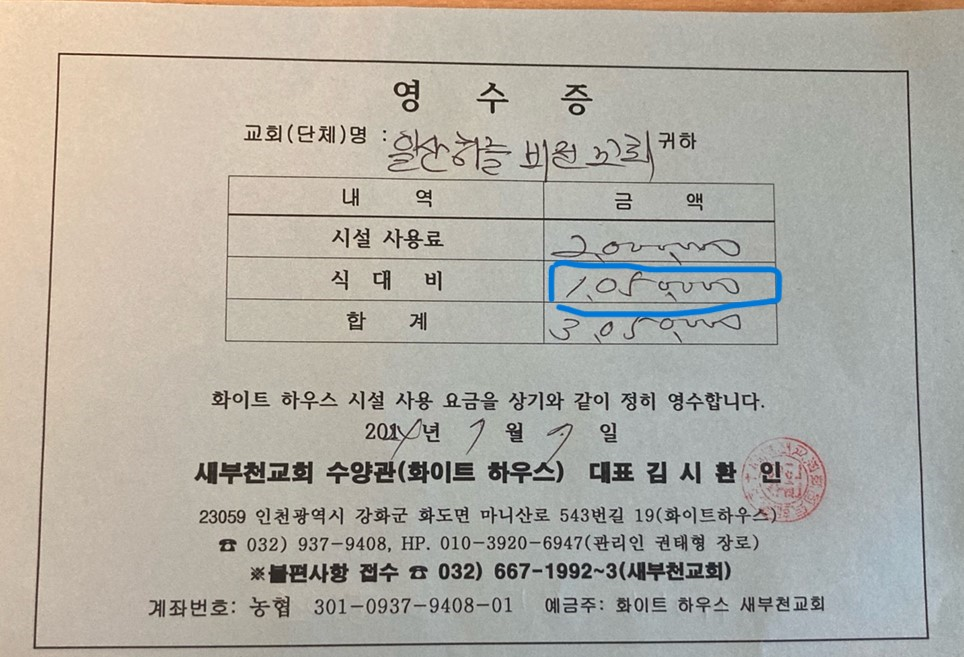 영 수 증
교회(단체)명 : 일산하늘비원교회 귀하
내 역 금 액
시설 사용료 2,000,000
식 대 비 1,050,000
합 계 3,050,000
화이트 하우스 시설 사용 요금을 상기와 같이 정히 영수합니다.
년 7 월 7 일
새부천교회 수양관(화이트 하우스) 대표 김 시 환 인
23059 인천광역시 강화군 화도면 마니산로 543번길 19(화이트하우스)
☎ 032) 937-9408, HP. 010-3920-6947(관리인 권태형 장로)
※불편사항 접수 ☎ 032) 667-1992~3(새부천교회)
계좌번호: 농협 301-0937-9408-01 예금주: 화이트 하우스 새부천교회